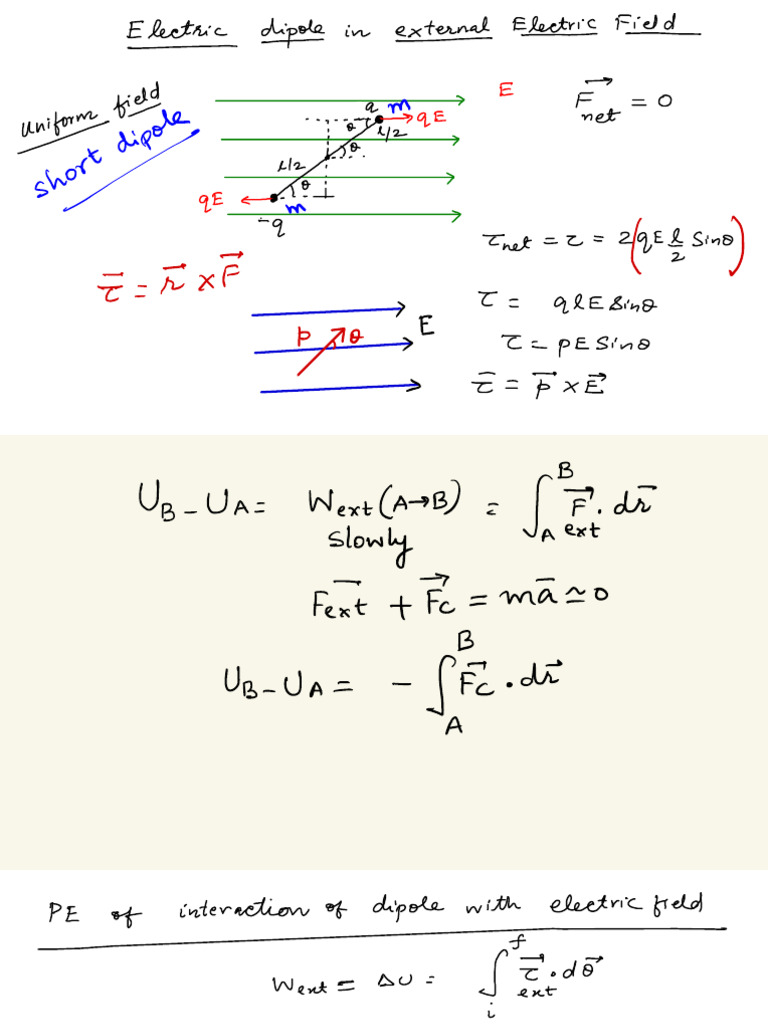 Electric dipole in external Electric Field
uniform field
short dipole
E
q m
qE
θ
l/2
θ
l/2
θ
qE
m
-q
F⃗net = 0
τnet = τ = 2(qE l/2 Sinθ)
τ⃗ = r⃗ × F⃗
τ = qlE Sinθ
p θ
E
τ = pE Sinθ
τ⃗ = p⃗ × E⃗
U_B - U_A = W_ext (A→B) = ∫_A^B F⃗_ext . dr⃗
slowly
F⃗ext + F⃗c = ma⃗ ≃ 0
U_B - U_A = - ∫_A^B F⃗c . dr⃗
PE of interaction of dipole with electric field
W_ext = ΔU = ∫_i^f τ⃗_ext . dθ⃗